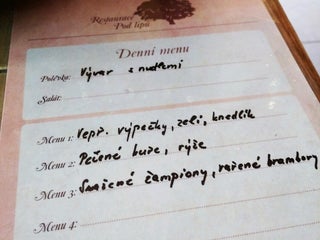 Restaurace
Pod lípou
Denní menu
Polévka: Vývar s nudlemi
Salát:
Menu 1: Vepř. výpečky, zelí, knedlík
Menu 2: Pečené kuře, rýže
Menu 3: Smažené žampiony, vařené brambory
Menu 4: